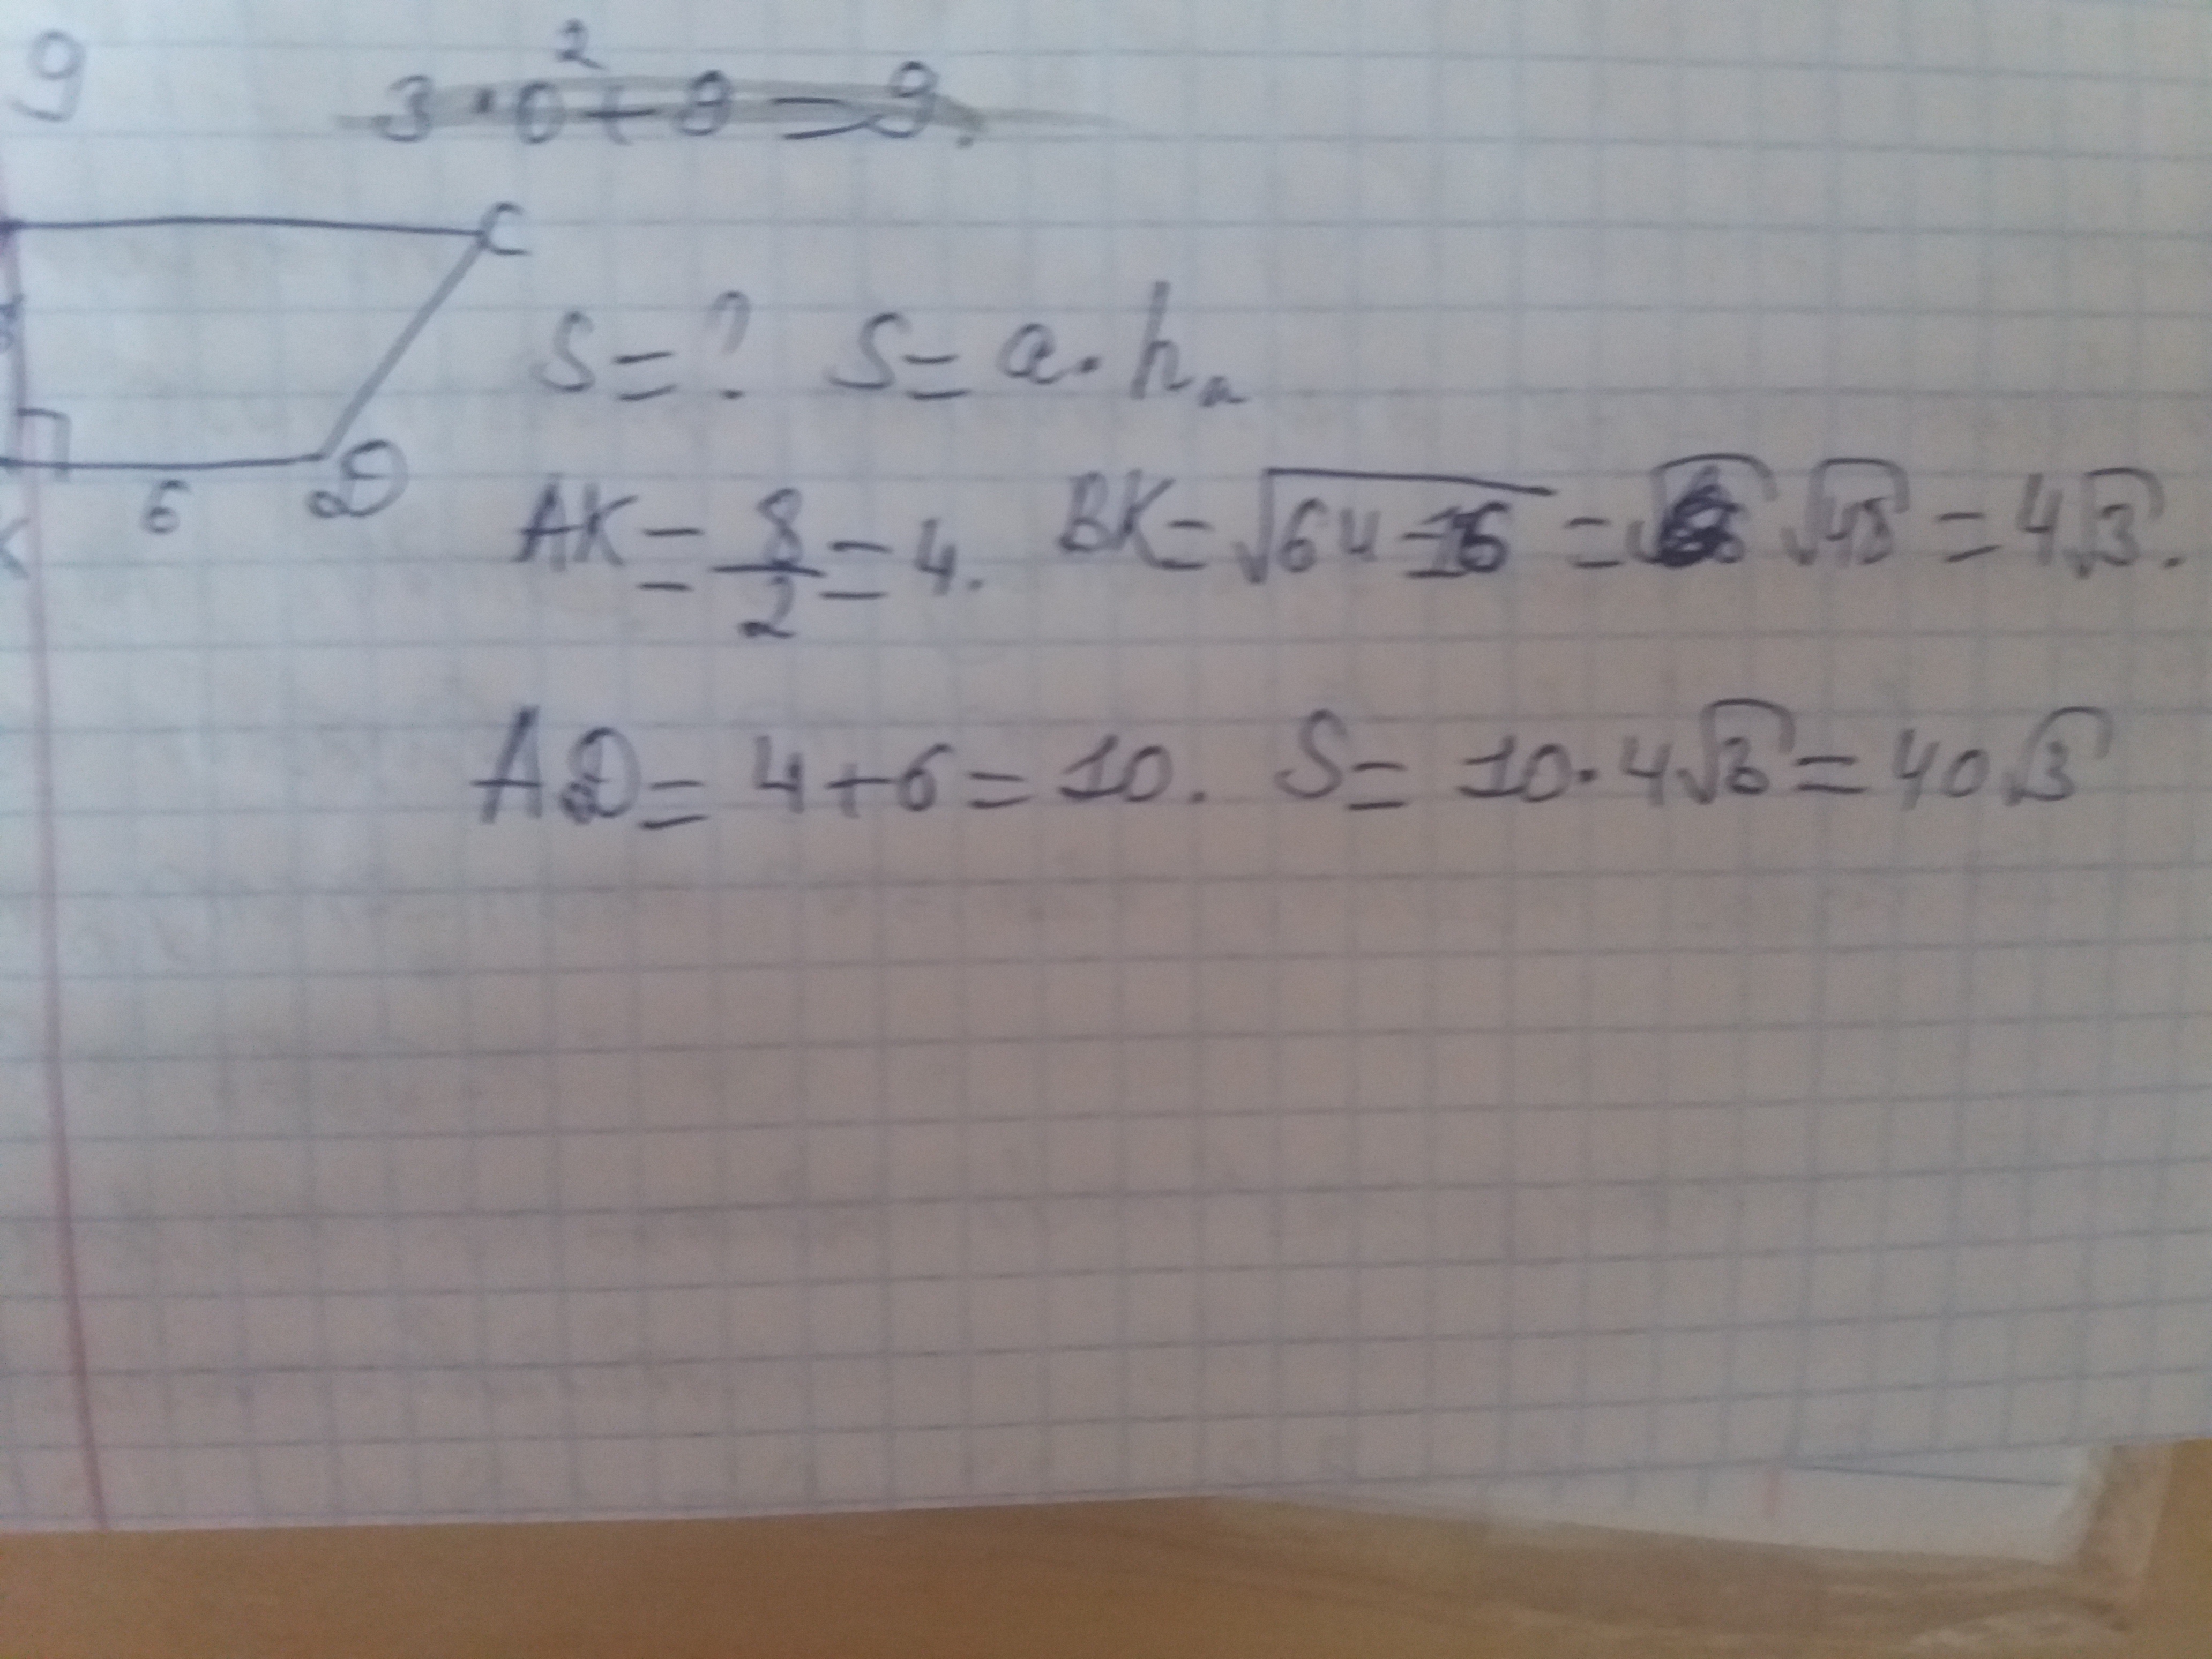 9
3 · 0² + 9 = 9.
C
S = ? S = a · hₐ
6 D
K
AK = 8/2 = 4. BK = √64-16 = √48 = 4√3.
AD = 4 + 6 = 10. S = 10 · 4√3 = 40√3